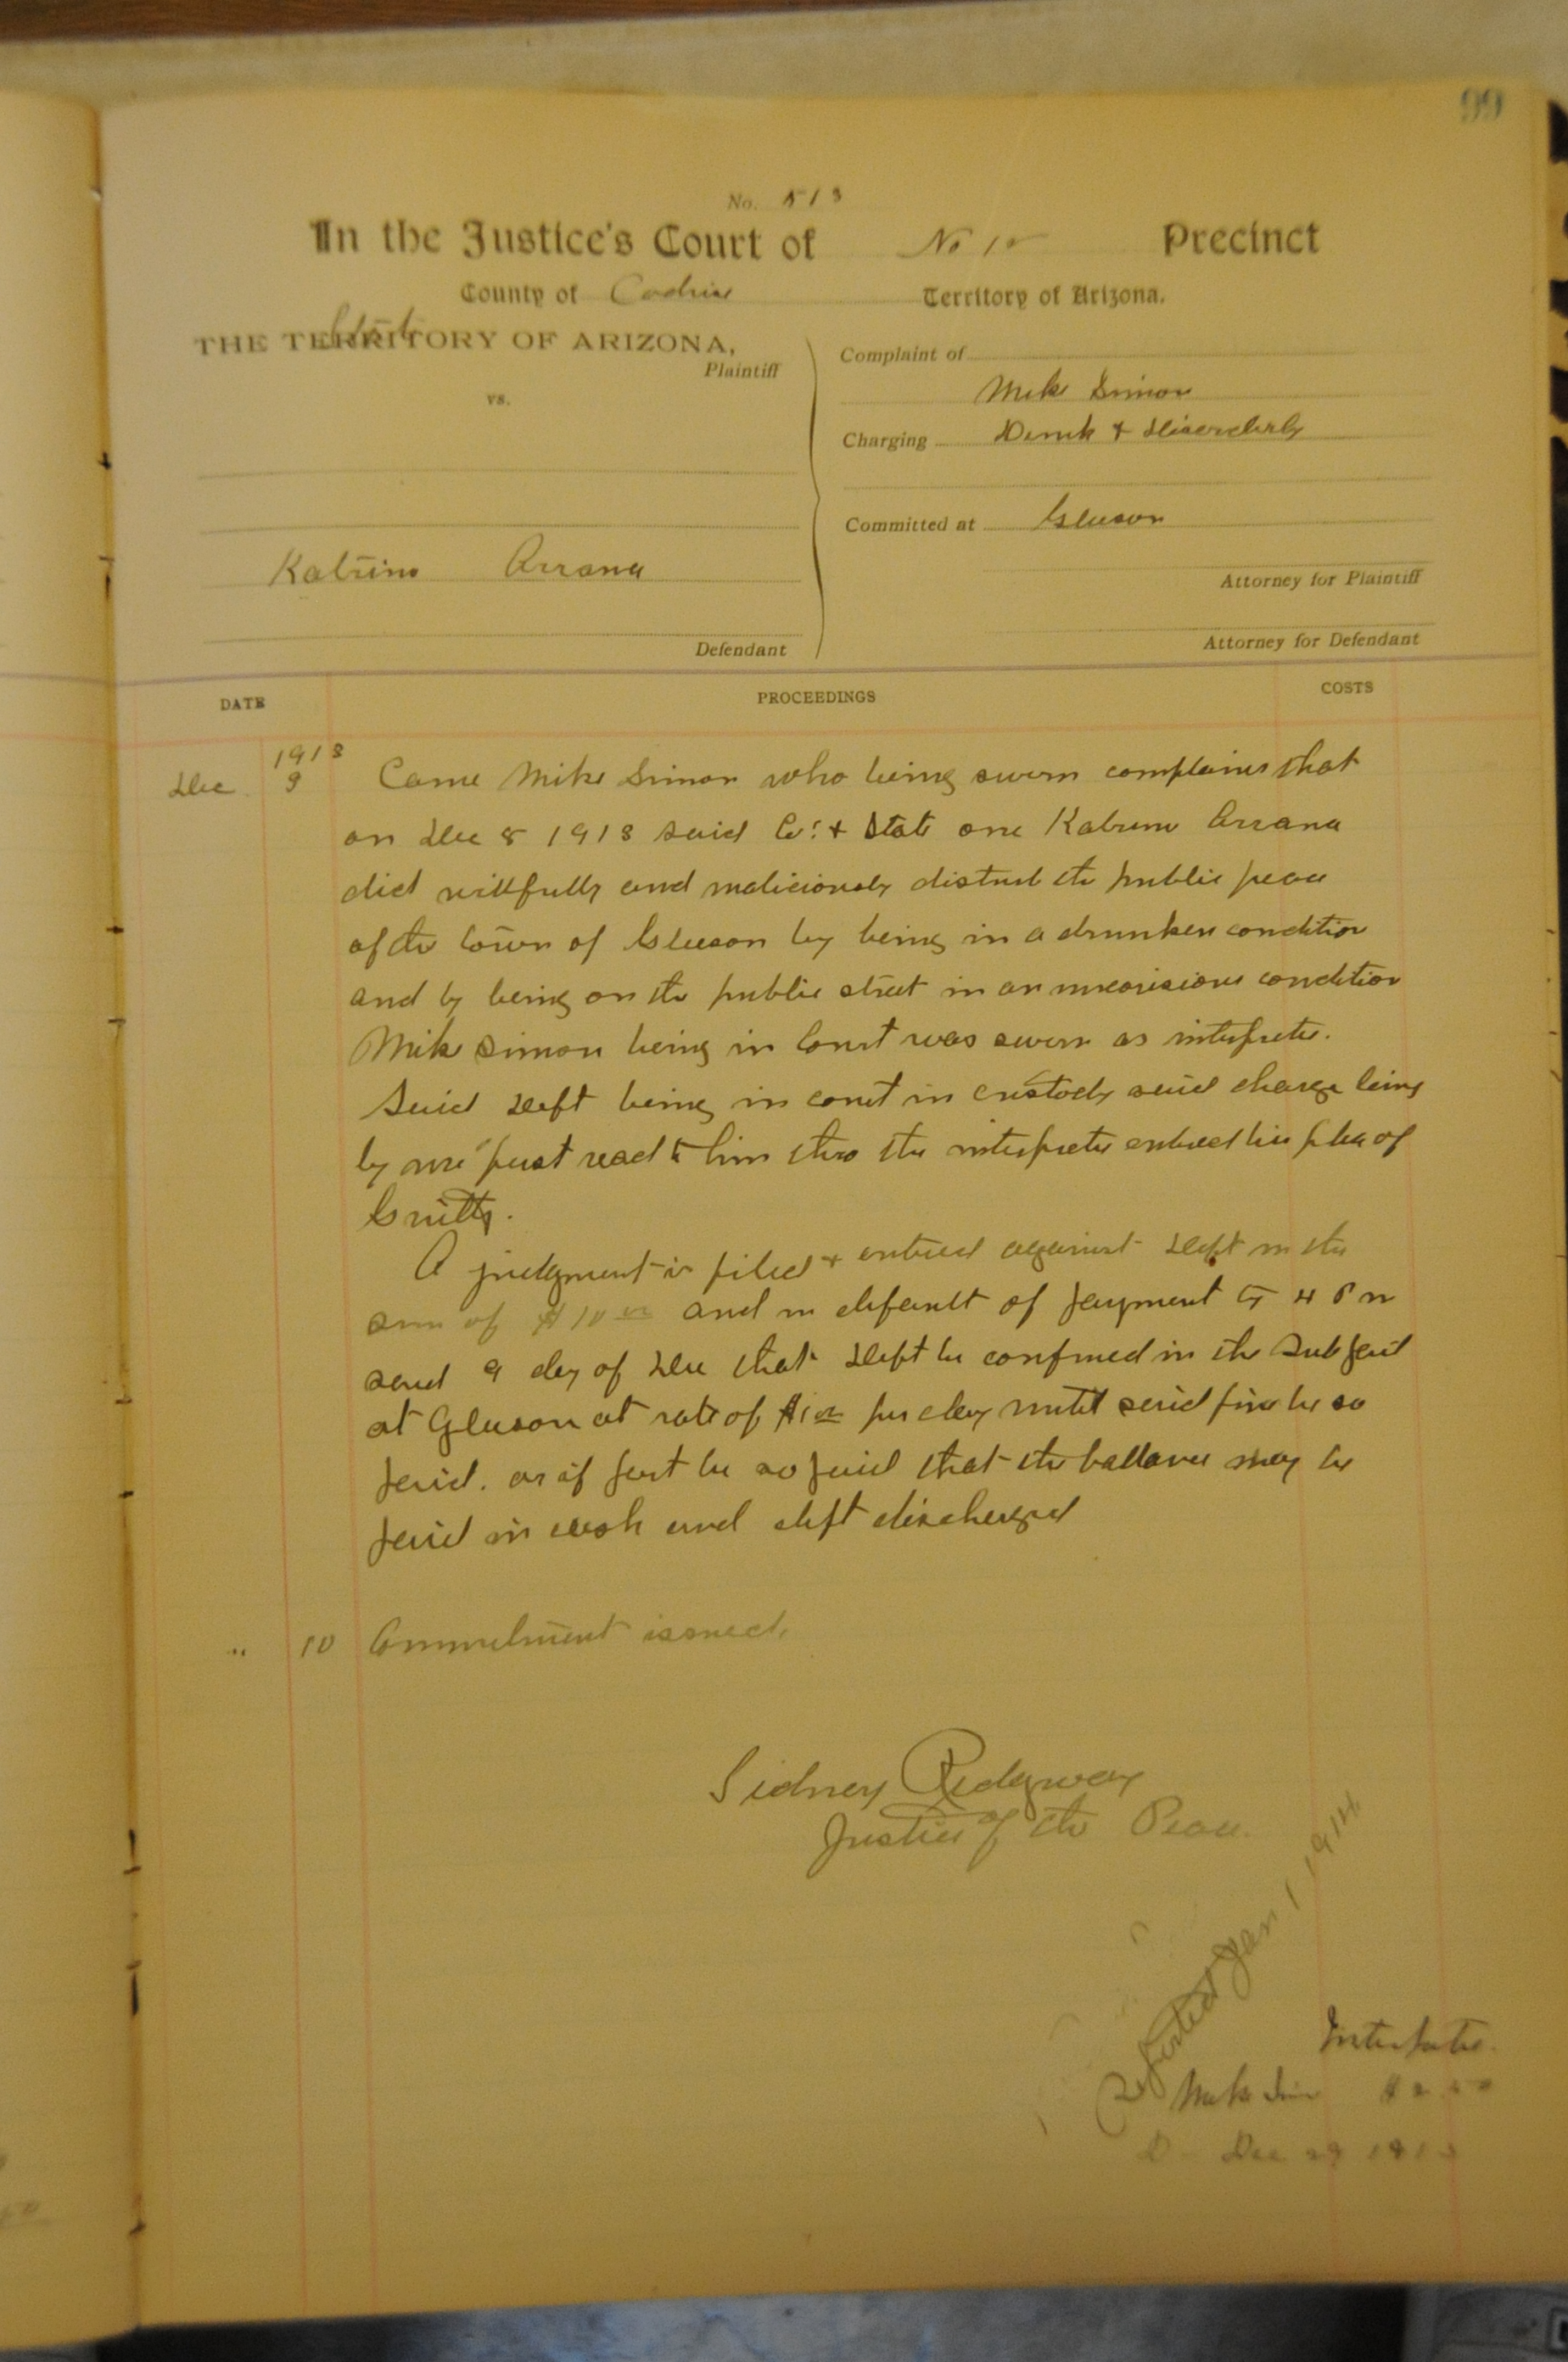 99
No. 513
In the Justice's Court of No 10 Precinct
County of Cochise Territory of Arizona.
State
THE TERRITORY OF ARIZONA,
Plaintiff
vs.
Katrino Arrana
Defendant
Complaint of
Mike Simon
Charging Drunk & Disorderly
Committed at Gleeson
Attorney for Plaintiff
Attorney for Defendant
DATE PROCEEDINGS COSTS
1913
Dec 9 Came Mike Simon who being sworn complains that
on Dec 8 1913 said Co. & State one Katrino Arrana
did willfully and maliciously disturb the public peace
of the town of Gleeson by being in a drunken condition
and by being on the public street in an unconscious condition
Mike Simon being in Court was sworn as interpreter.
Said Deft being in court in custody said charge being
by me first read to him thro the interpreter entered his plea of
Guilty.
A judgment is filed & entered against Deft in the
sum of $10 00 and in default of payment by 4 P m
said 9 day of Dec that Deft be confined in the Sub Jail
at Gleeson at rate of $1 00 per day until said fine be so
paid. or if part be so paid that the ballance may be
paid in cash and deft discharged
" 10 Commitment issued.
Sidney Ridgway
Justice of the Peace.
Reported Jan 1 1914
Interpreter.
Mike Simon
Dec 29 191